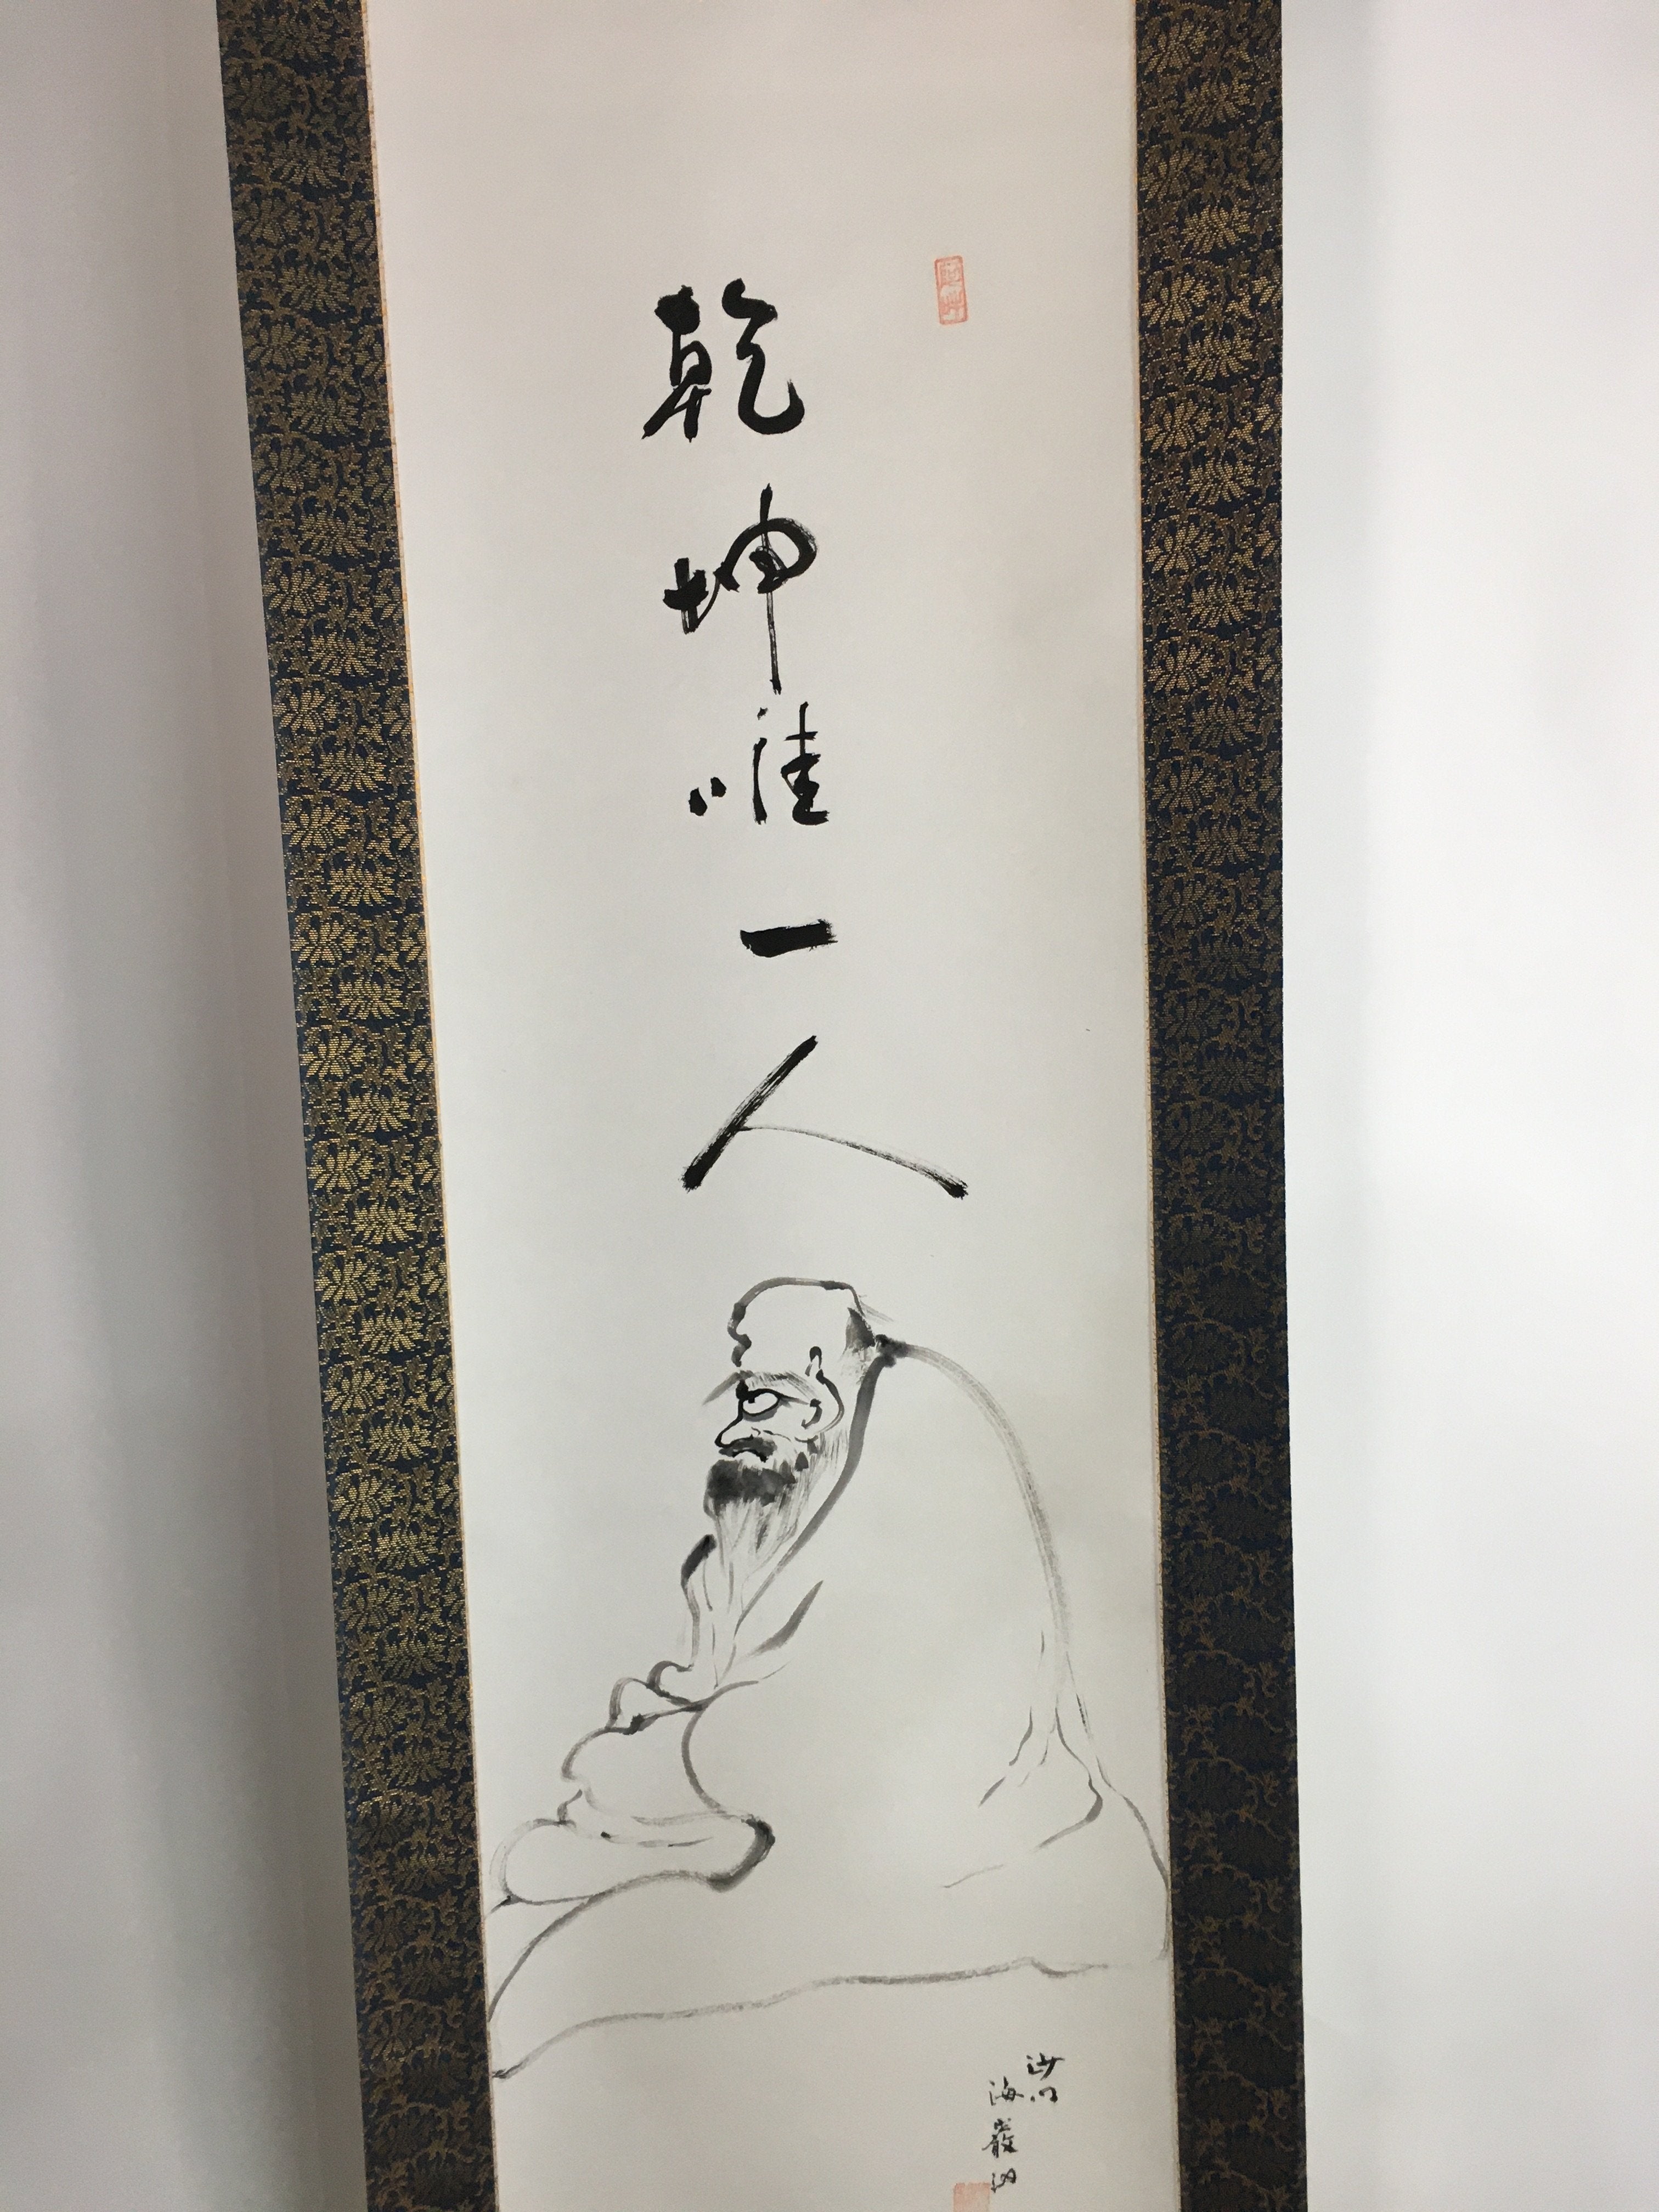 乾坤唯一人
沙門
海巖